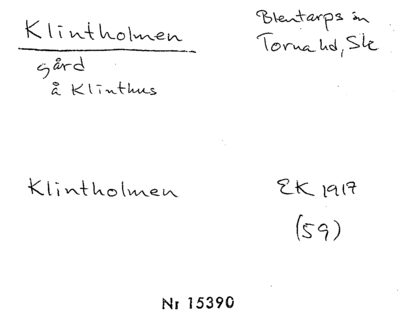 Klintholmen
Blentarps sn
Torna hd, Sk
gård
å Klinthus
Klintholmen
EK 1917
(59)
Nr 15390